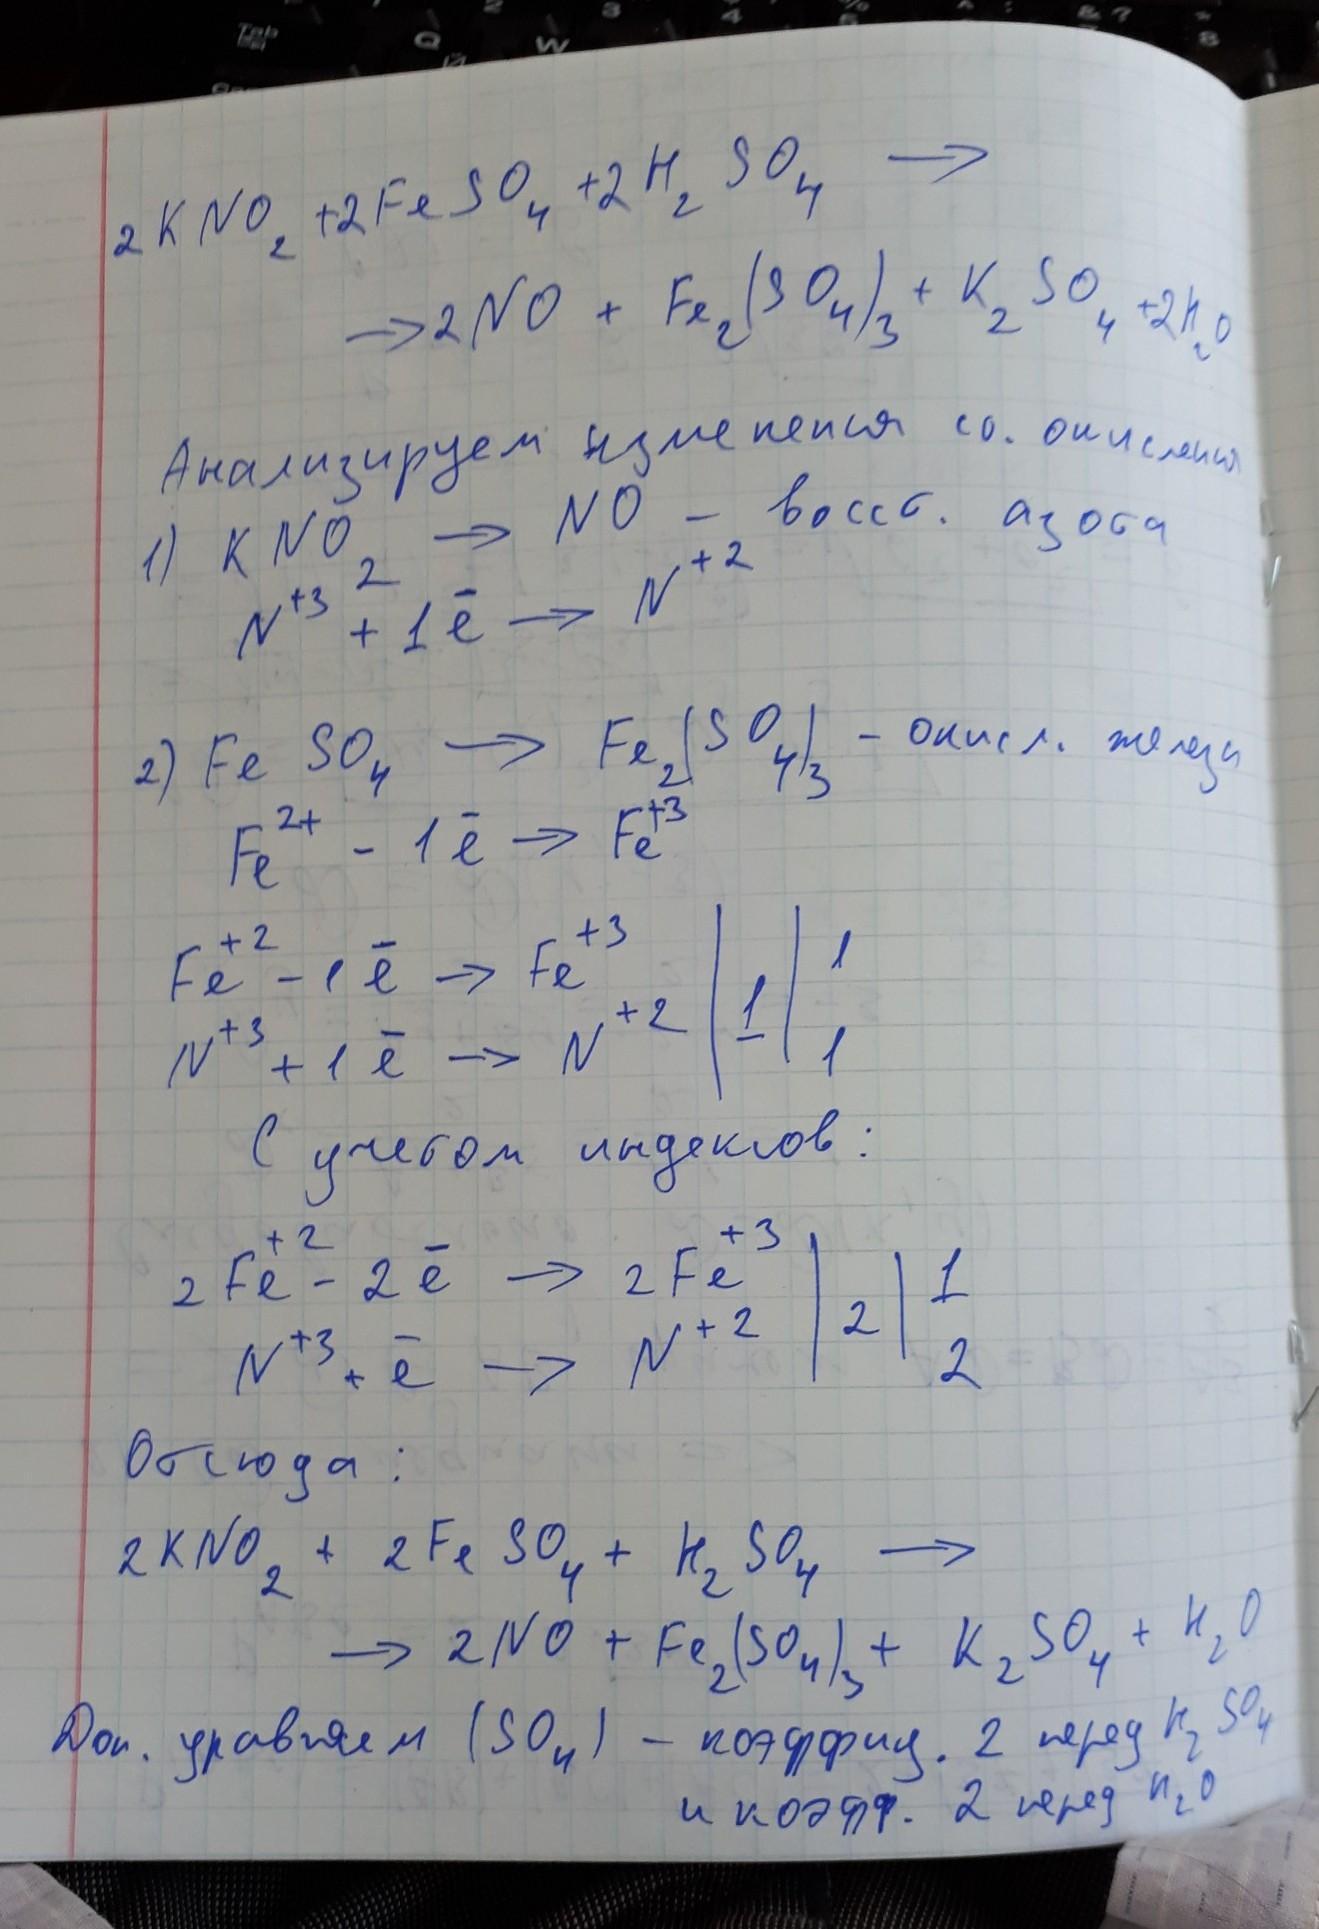 2KNO₂ + 2FeSO₄ + 2H₂SO₄ →
→ 2NO + Fe₂(SO₄)₃ + K₂SO₄ + 2H₂O
Анализируем изменения со. окисления
1) KNO₂ → NO – восст. азота
N⁺³ + 1ē → N⁺²
2) FeSO₄ → Fe₂(SO₄)₃ – окисл. железа
Fe²⁺ – 1ē → Fe⁺³
Fe⁺² – 1ē → Fe⁺³ | 1 | 1
N⁺³ + 1ē → N⁺² | 1
С учетом индексов:
2Fe⁺² – 2ē → 2Fe⁺³ | 2 | 1
N⁺³ + ē → N⁺² | 2
Отсюда:
2KNO₂ + 2FeSO₄ + H₂SO₄ →
→ 2NO + Fe₂(SO₄)₃ + K₂SO₄ + H₂O
Доп. уравняем (SO₄) – коэффиц. 2 перед H₂SO₄
и коэфф. 2 перед H₂O